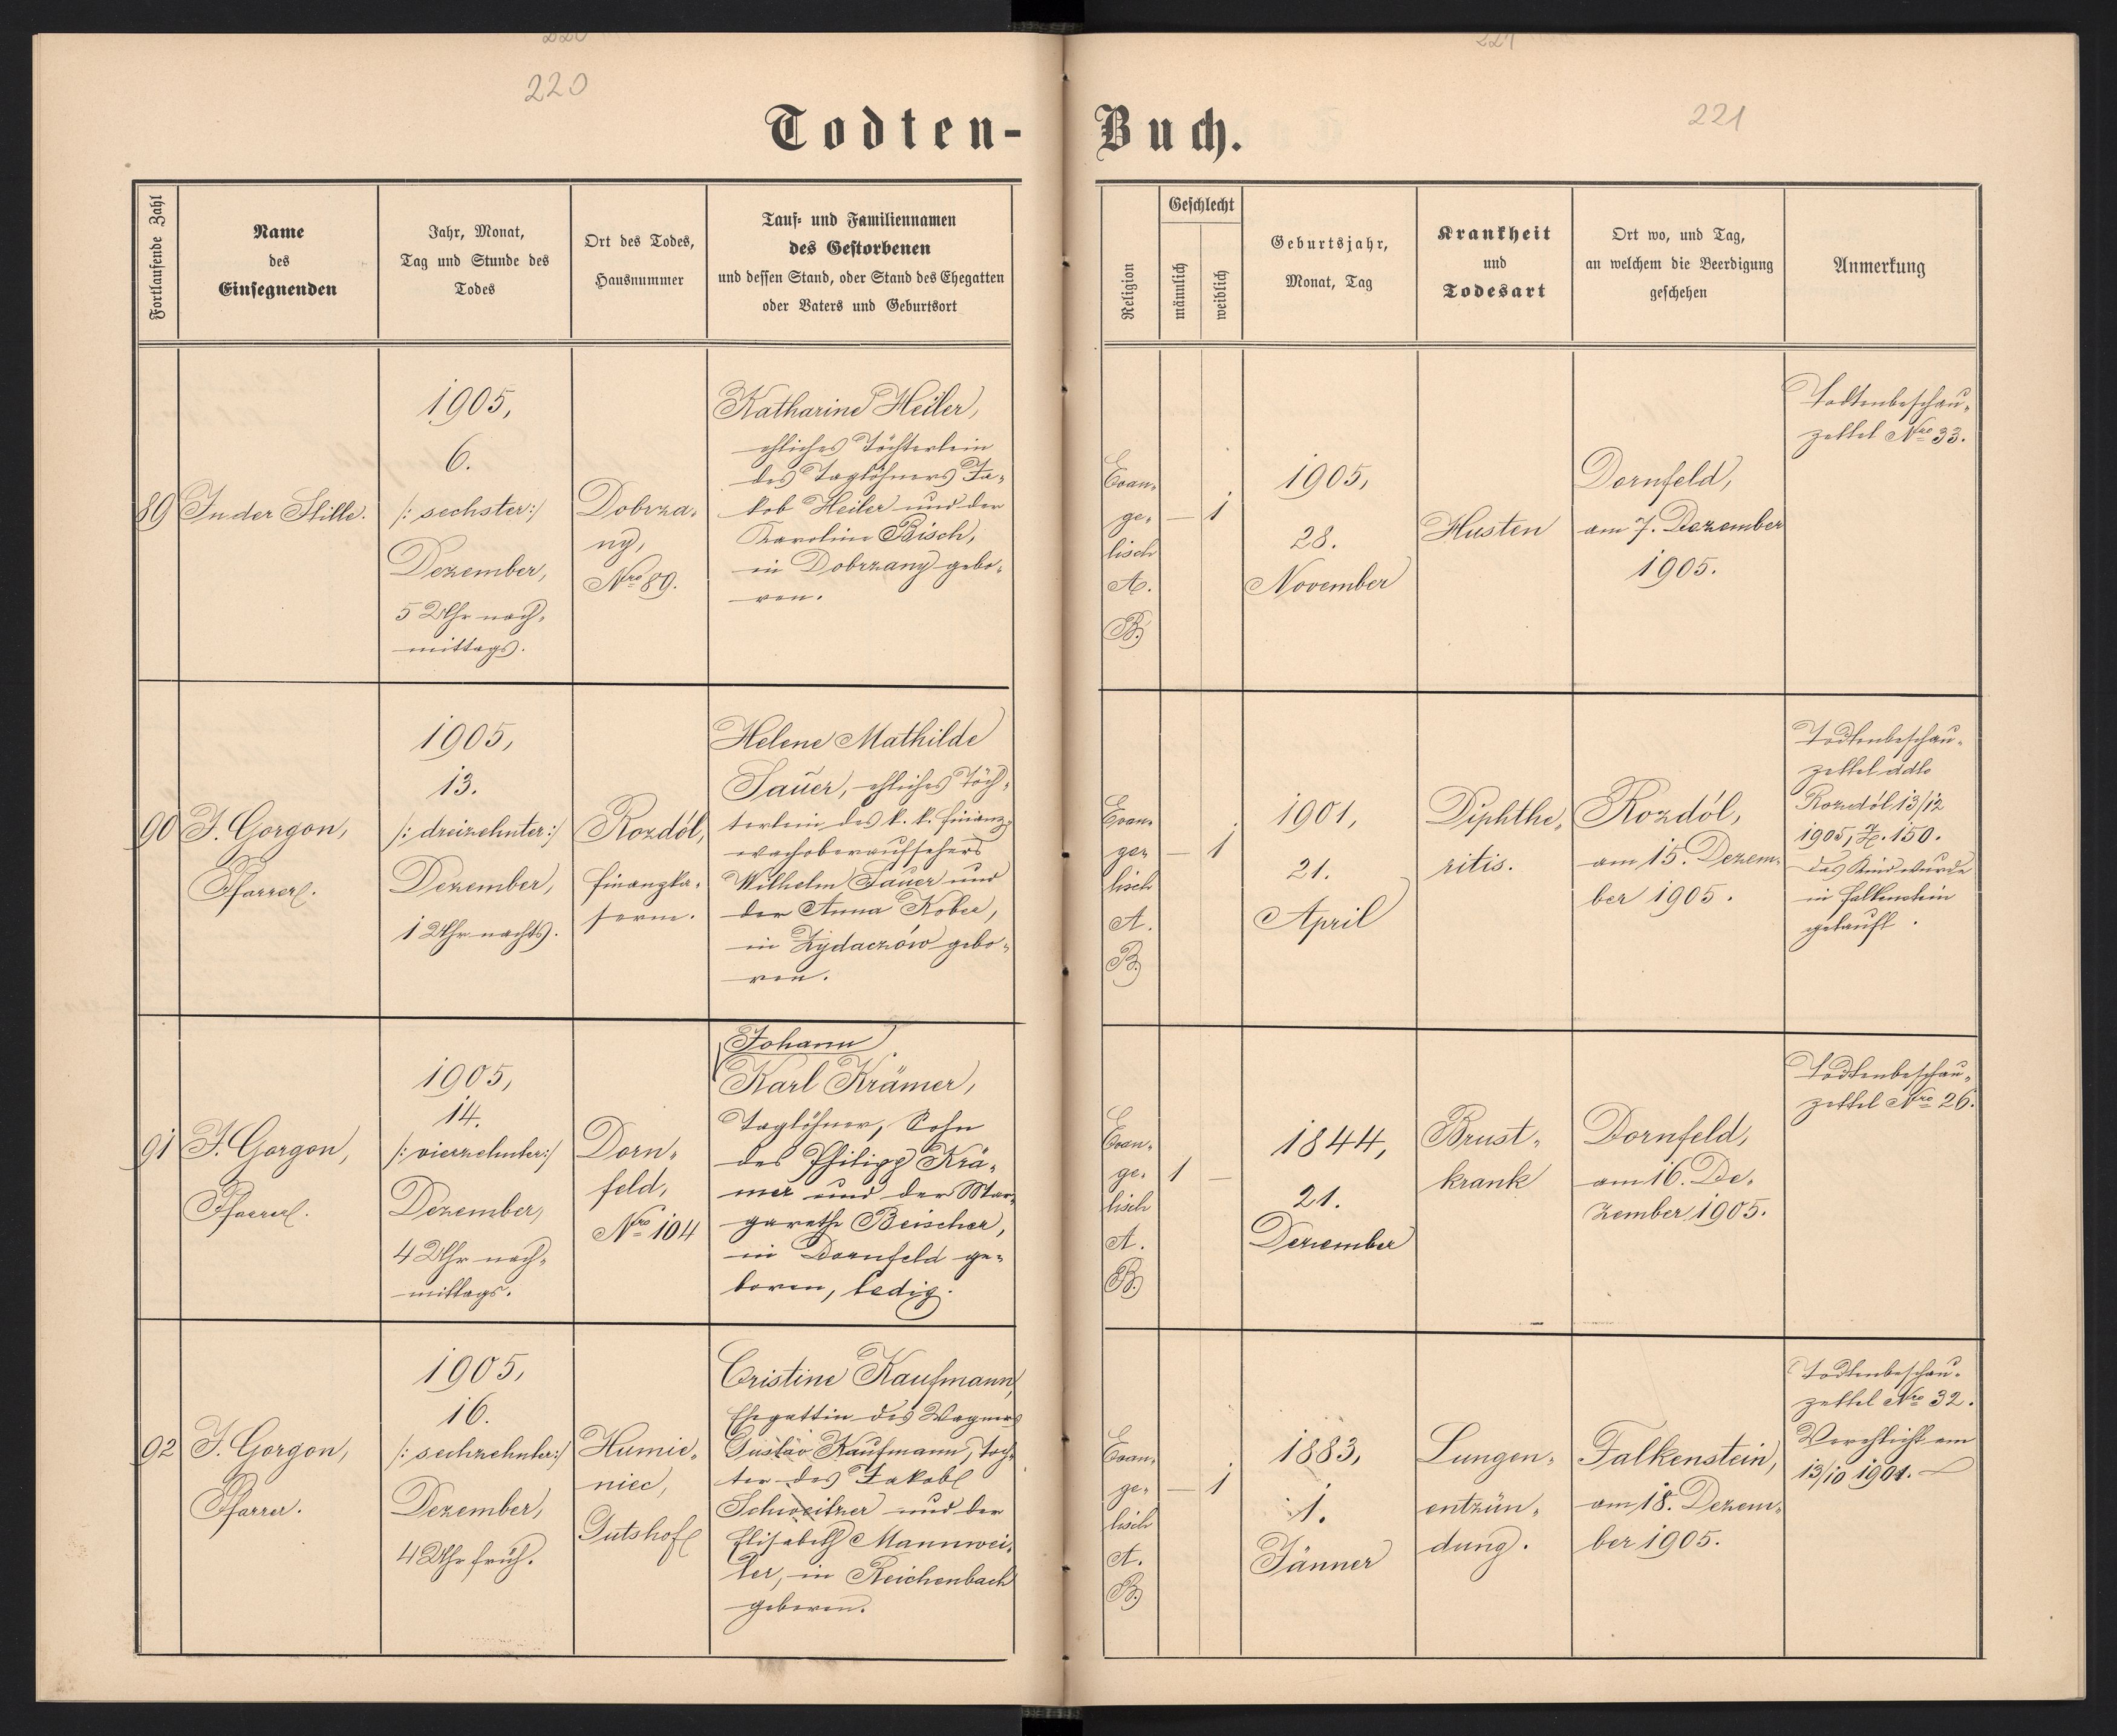 220
221
220
221
Todten-
Buch.
Fortlaufende Zahl
Name
des
Einsegnenden
Jahr, Monat,
Tag und Stunde des
Todes
Ort des Todes,
Hausnummer
Tauf- und Familiennamen
des Gestorbenen
und dessen Stand, oder Stand des Ehegatten
oder Vaters und Geburtsort
Religion
Geschlecht
männlich
weiblich
Geburtsjahr,
Monat, Tag
Krankheit
und
Todesart
Ort wo, und Tag,
an welchem die Beerdigung
geschehen
Anmerkung
89
In der Stille.
1905,
6.
/: sechster :/
Dezember,
5 Uhr nach-
mittags.
Dobrza-
ny,
Nro 89.
Katharine Heiler,
ehliches Töchterlein
des Taglöhners Ja-
kob Heiler und der
Karoline Bisch,
in Dobrzany gebo-
ren.
Evan-
ge-
lisch
A.
B.
— 1
1905,
28.
November
Husten
Dornfeld,
am 7. Dezember
1905.
Todtenbeschau-
zettel Nro 33.
90
J. Gorgon,
Pfarrer.
1905,
13.
/: dreizehnter :/
Dezember,
1 Uhr nachts.
Rozdół,
Finanzka-
serne.
Helene Mathilde
Sauer, ehliches Töch-
terlein des k. k. Finanz-
wachoberaufsehers
Wilhelm Sauer und
der Anna Kober,
in Żydaczów gebo-
ren.
Evan-
ge-
lisch
A.
B.
— 1
1901,
21.
April
Diphthe-
ritis.
Rozdół,
am 15. Dezem-
ber 1905.
Todtenbeschau-
zettel ddto
Rozdół 13/12
1905, Z. 150.
Das Kind wurde
in Falkenstein
getauft.
91
J. Gorgon,
Pfarrer.
1905,
14.
/: vierzehnter :/
Dezember,
4 Uhr nach-
mittags.
Dorn-
feld,
Nro 104
Johann
Karl Krämer,
Taglöhner, Sohn
des Philipp Krä-
mer und der Mar-
garethe Beischer,
in Dornfeld ge-
boren, ledig.
Evan-
ge-
lisch
A.
B.
1 —
1844,
21.
Dezember
Brust-
krank
Dornfeld,
am 16. De-
zember 1905.
Todtenbeschau-
zettel Nro 26.
92
J. Gorgon,
Pfarrer.
1905,
16.
/: sechzehnter :/
Dezember,
4 Uhr früh.
Humie-
niec,
Gutshof
Cristine Kaufmann,
Ehegattin des Wagners
Gustav Kaufmann, Toch-
ter des Jakob
Schweitzer und der
Elisabeth Mannwei-
ler, in Reichenbach
geboren.
Evan-
ge-
lisch
A.
B.
— 1
1883,
1.
Jänner
Lungen-
entzün-
dung.
Falkenstein,
am 18. Dezem-
ber 1905.
Todtenbeschau-
zettel Nro 32.
Verehlicht am
13/10 1901.